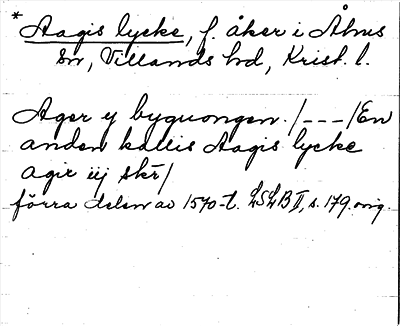 * Aagis lycke, f. åker i Åhus
sn, Villands hd, Krist. l.
Ager y byguongen. /---/ En
anden kallis Aagis lycke
agir iij skr/
förra delen av 1570-t. LSLB II, s. 179. orig.